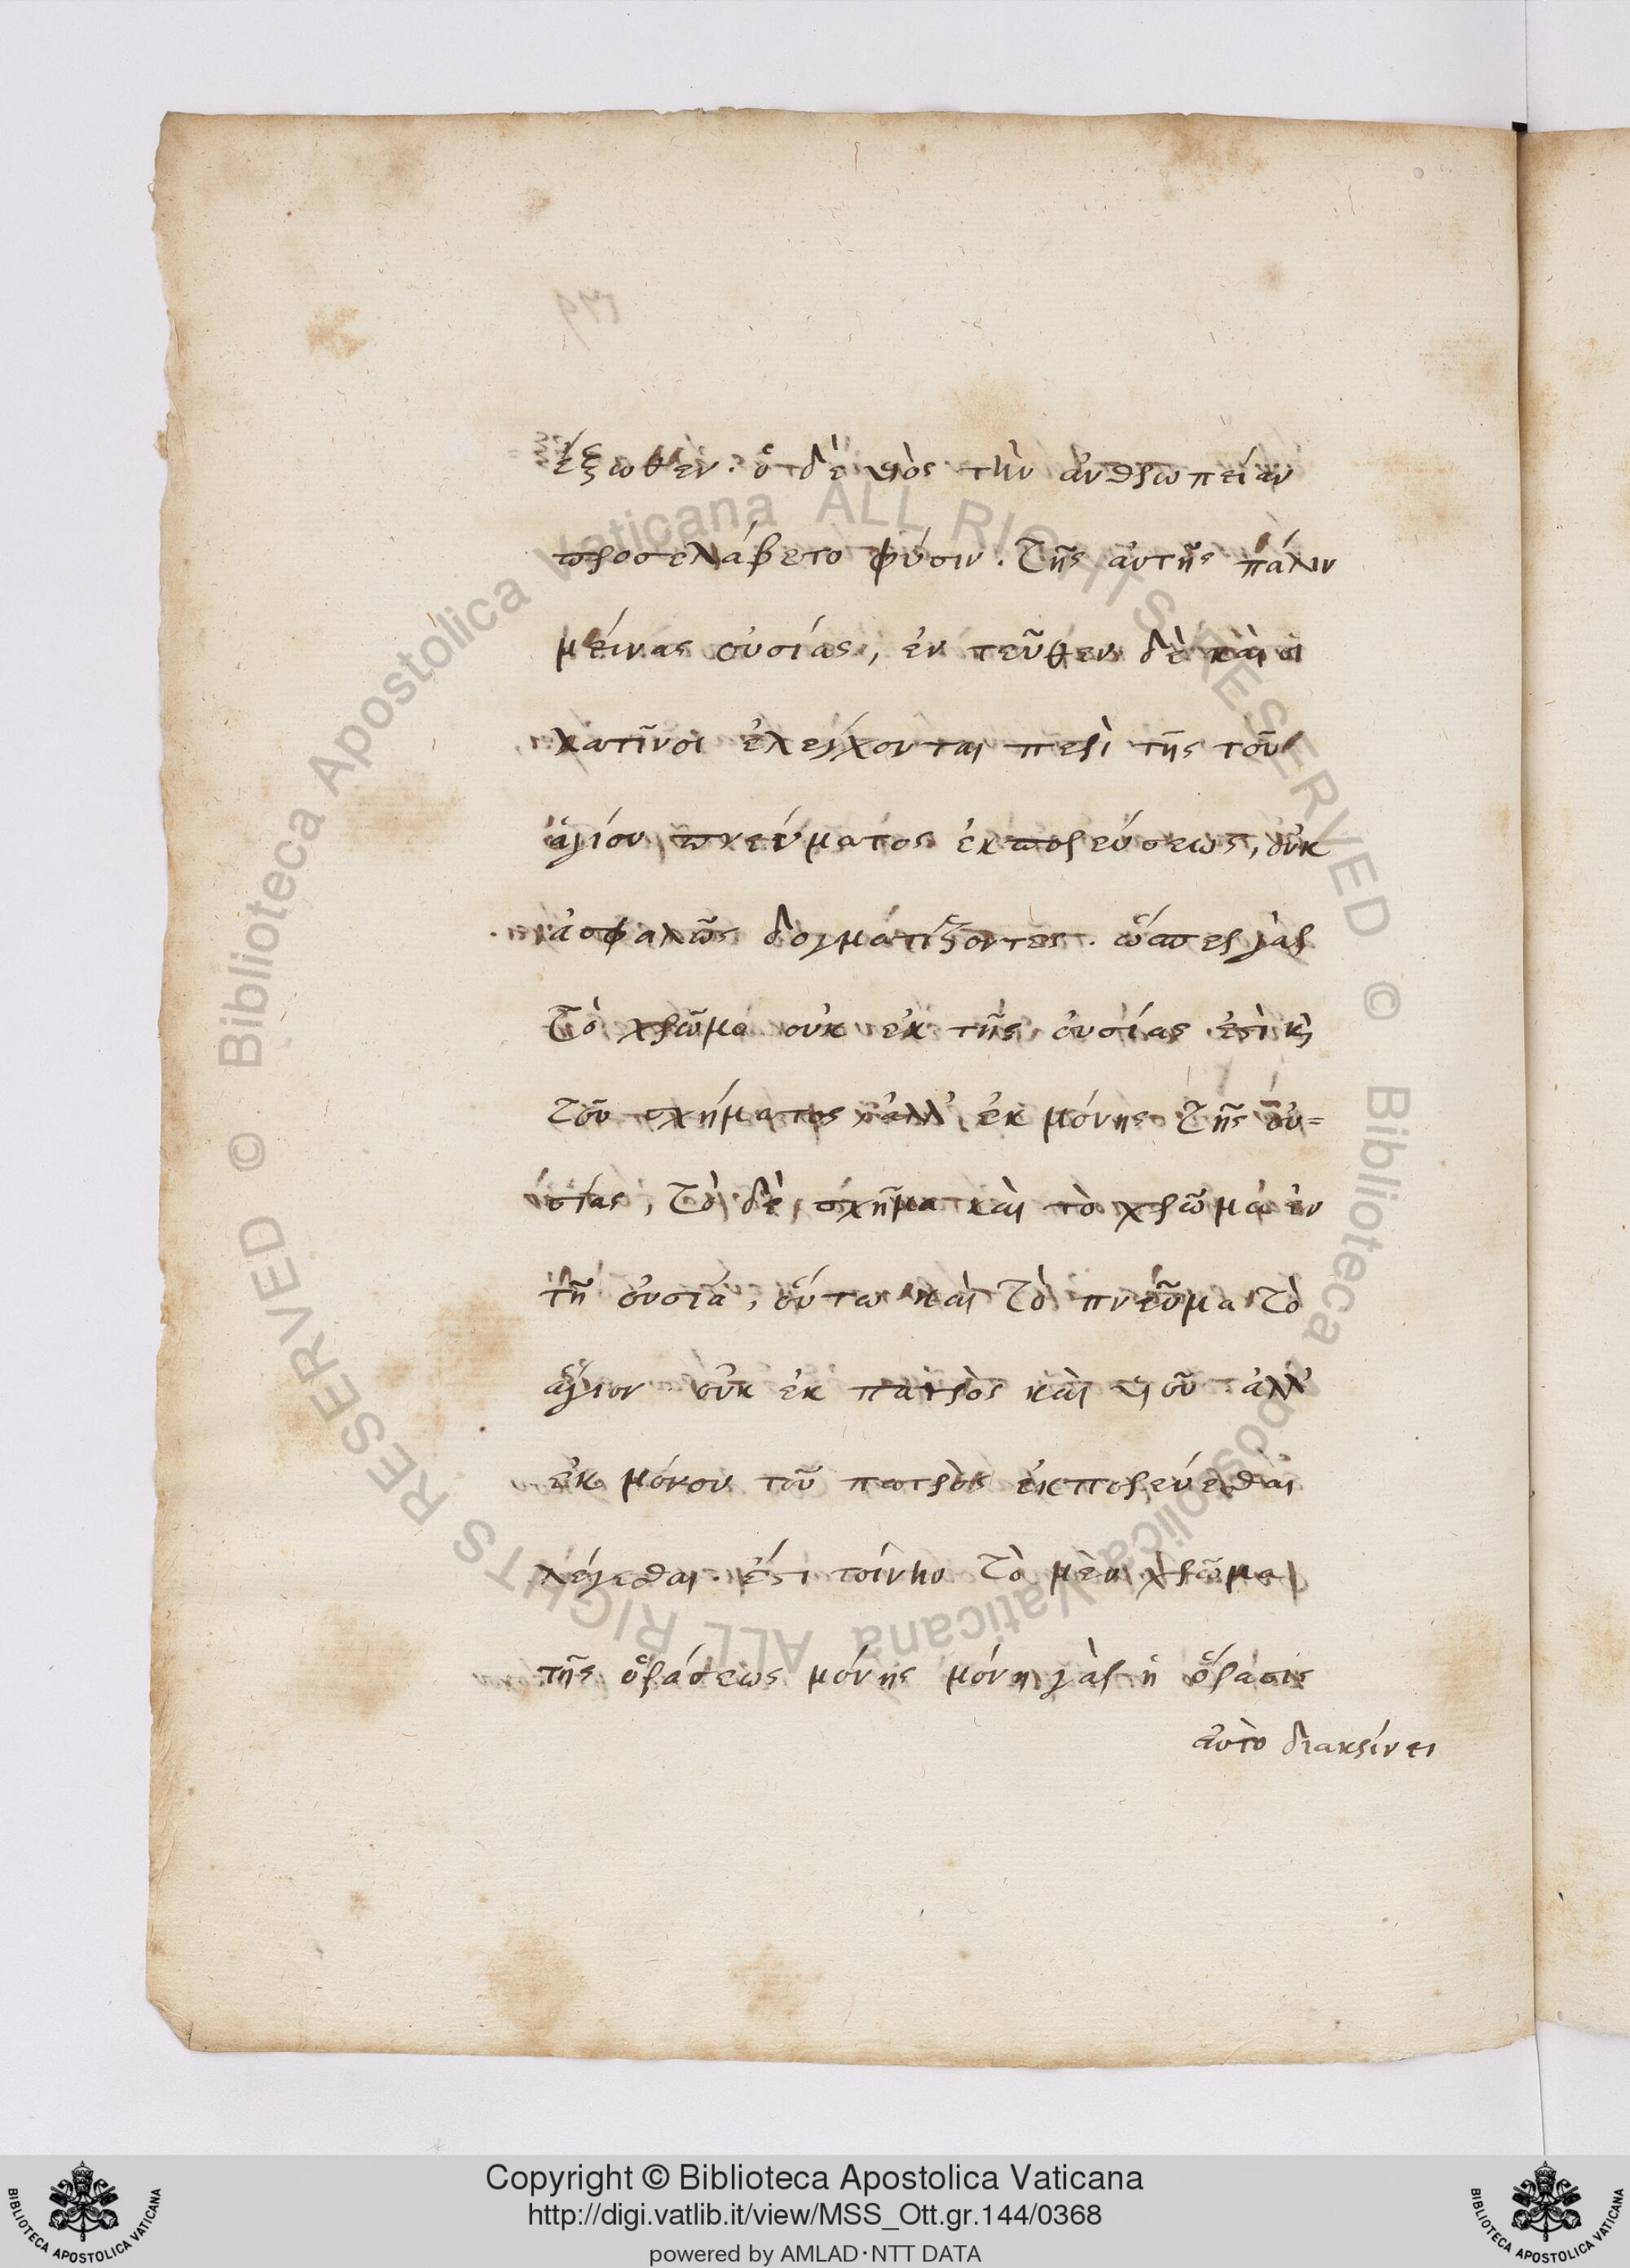 ἔξωθεν. ὁ δὲ υἱὸς τὴν ἀνθρωπείαν
προσελάβετο φύσιν. τῆς αὐτῆς πάλιν
μείνας οὐσίας, ἐν τεῦθεν δὲ καὶ οἱ
λατῖνοι ἐλέγχονται περὶ τῆς τοῦ
ἁγίου πνεύματος ἐκπορεύσεως, οὐκ
ἀσφαλῶς δογματίζοντες. ὥσπερ γὰρ
τὸ χρῶμα οὐκ ἐκ τῆς οὐσίας ἐστὶ καὶ
τοῦ σχήματος ἀλλ' ἐκ μόνης τῆς οὐ=
σίας, τὸ δὲ σχῆμα καὶ τὸ χρῶμα ἐν
τῇ οὐσίᾳ, οὕτω καὶ τὸ πνεῦμα τὸ
ἅγιον οὐκ ἐκ πατρὸς καὶ υἱοῦ ἀλλ'
ἐκ μόνου τοῦ πατρὸς ἐκπορεύεσθαι
λέγεσθαι. ἔστι τοίνυν τὸ μὲν χρῶμα
τῆς ὁράσεως μόνης μόνη γὰρ ἡ ὅρασις
αὐτὸ διακρίνει
Copyright © Biblioteca Apostolica Vaticana
http://digi.vatlib.it/view/MSS_Ott.gr.144/0368
powered by AMLAD·NTT DATA
BIBLIOTECA APOSTOLICA VATICANA
BIBLIOTECA APOSTOLICA VATICANA
© Biblioteca Apostolica Vaticana ALL RIGHTS RESERVED
© Biblioteca Apostolica Vaticana ALL RIGHTS RESERVED